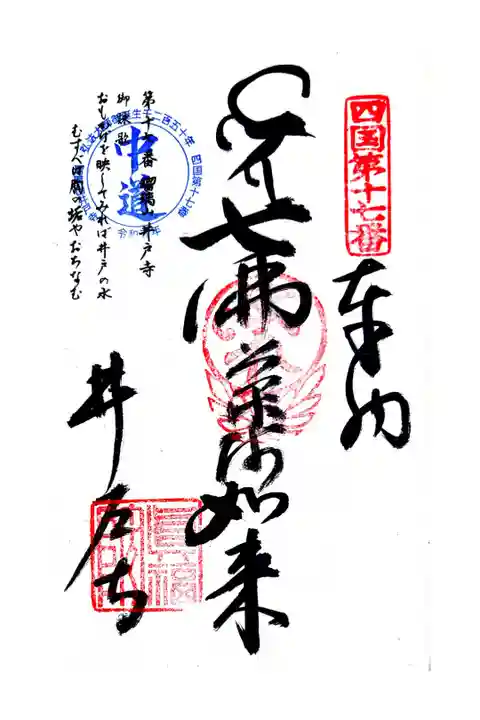 四国第十七番
奉納
七佛薬師如来
井戸寺
第十七番 瑠璃山井戸寺
御詠歌
おもかげを映してみれば井戸の水
むすべば胸の垢やおちなむ
中道
四国第十七番